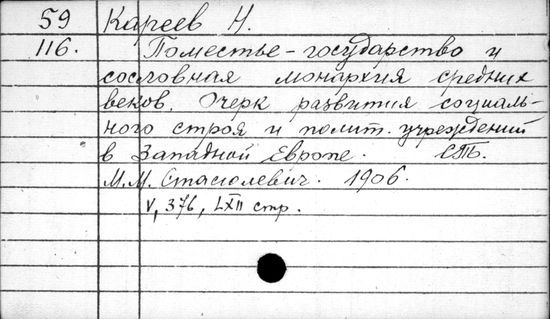 59 Кареев Н.
116. Поместье-государство и
сословная монархия средних
веков. Очерк развития социаль-
ного строя и полит. учреждений
в Западной Европе. СПБ.
М.М. Стасюлевич. 1906.
V, 376, LXII стр.